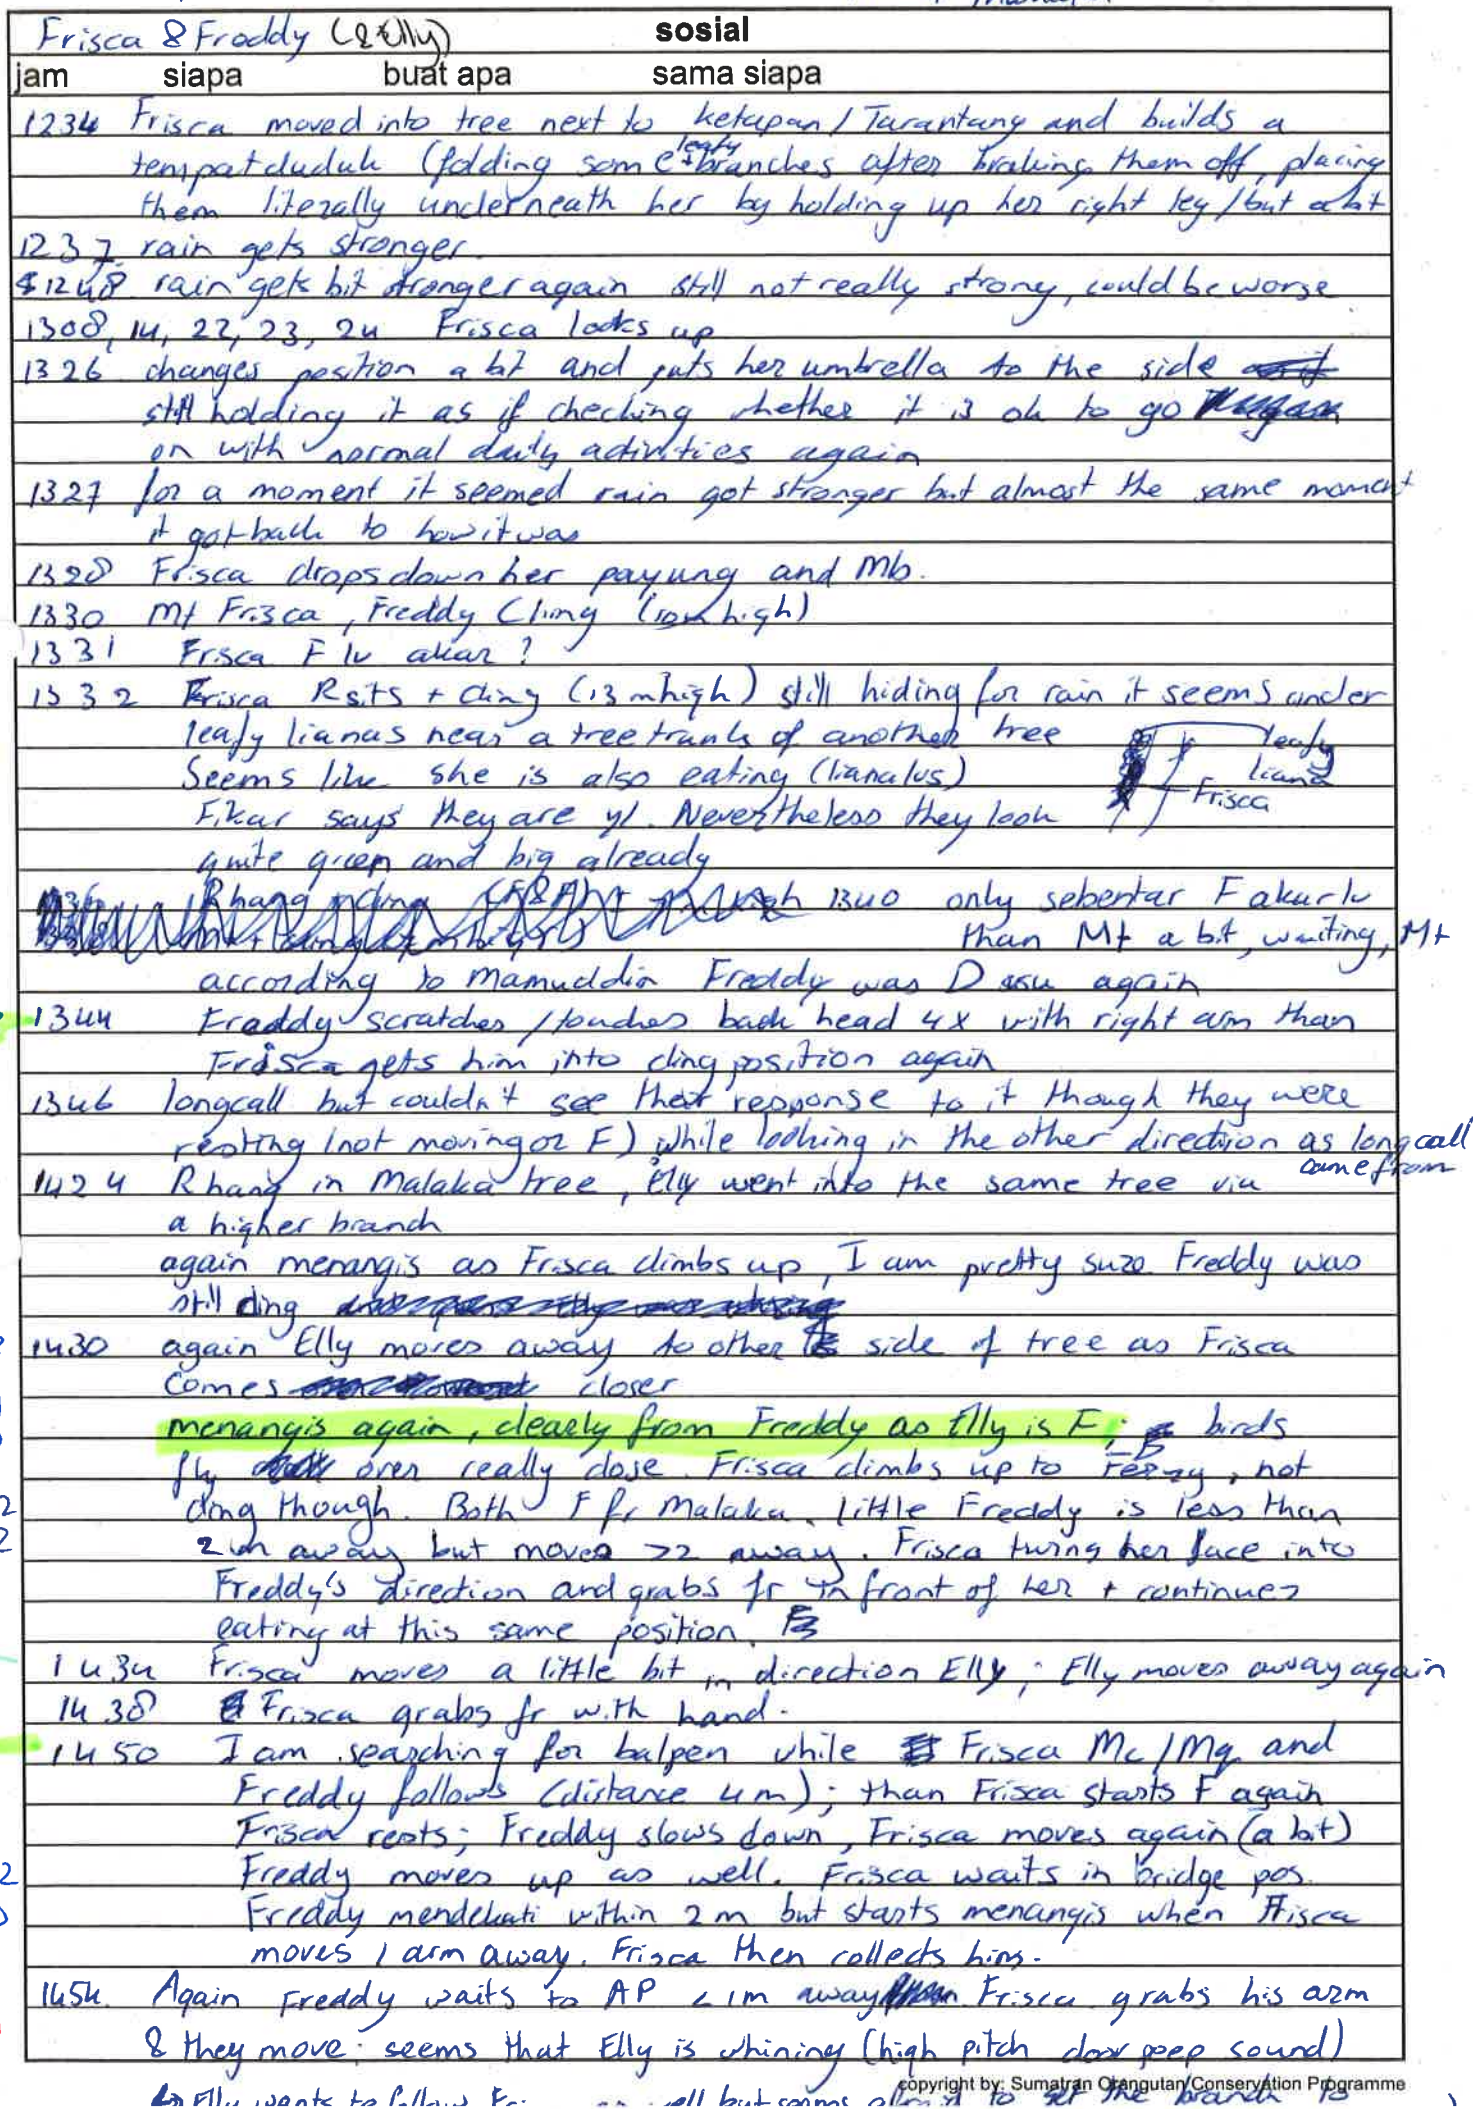 Frisca & Freddy (& Elly) sosial
jam siapa buat apa sama siapa
1234 Frisca moved into tree next to ketapan / Tarantang and builds a
tempat duduk (folding some leafy branches after braking them off, placing
them literally underneath her by holding up her right leg / but a bit
1237 rain gets stronger
1248 rain gets bit stronger again still not really strong, could be worse
1308, 14, 22, 23, 24 Frisca looks up
1326 changes position a bit and puts her umbrella to the side
still holding it as if checking whether it is ok to go
on with normal daily activities again
1327 for a moment it seemed rain got stronger but almost the same moment
it got back to how it was
1328 Frisca drops down her payung and Mb.
1330 Mt Frisca, Freddy Cling (10m high)
1331 Frisca F lv akar?
1332 Frisca Rsits + cling (13 m high) still hiding for rain it seems under
leafy lianas near a tree trunk of another tree
leafy
liana
Frisca
Seems like she is also eating (liana lvs)
Fikar says they are yl. Nevertheless they look
quite green and big already
Rhang 1340 only sebentar F akar lv
than Mt a bit, waiting, Mt
according to Mamuddin Freddy was D asu again
1344 Freddy scratches / touches back head 4x with right arm than
Frisca gets him into cling position again
1346 longcall but couldn't see their response to it though they were
resting (not moving or F) while looking in the other direction as longcall
came from
1424 Rhang in Malaka tree, Elly went into the same tree via
a higher branch
again menangis as Frisca climbs up, I am pretty sure Freddy was
still cling
1430 again Elly moves away to other side of tree as Frisca
comes closer
menangis again, clearly from Freddy as Elly is F; birds
fly over really close. Frisca climbs up to , not
cling though. Both F fr Malaka. little Freddy is less than
2m away but moves >2 away. Frisca turing her face into
Freddy's direction and grabs fr in front of her + continues
eating at this same position.
1434 Frisca moves a little bit in direction Elly; Elly moves away again
1438 Frisca grabs fr with hand.
1450 I am searching for balpen while Frisca Mc/Mq and
Freddy follows (distance 4m); than Frisca starts F again
Frisca rests; Freddy slows down, Frisca moves again (a bit)
Freddy moves up as well. Frisca waits in bridge pos.
Freddy mendekati within 2m but starts menangis when Frisca
moves 1 arm away. Frisca then collects him.
1454. Again Freddy waits to AP <1m away Frisca grabs his arm
& they move; seems that Elly is whining (high pitch door peep sound)
copyright by: Sumatran Orangutan Conservation Programme
Elly wants to follow but seems to the branch to